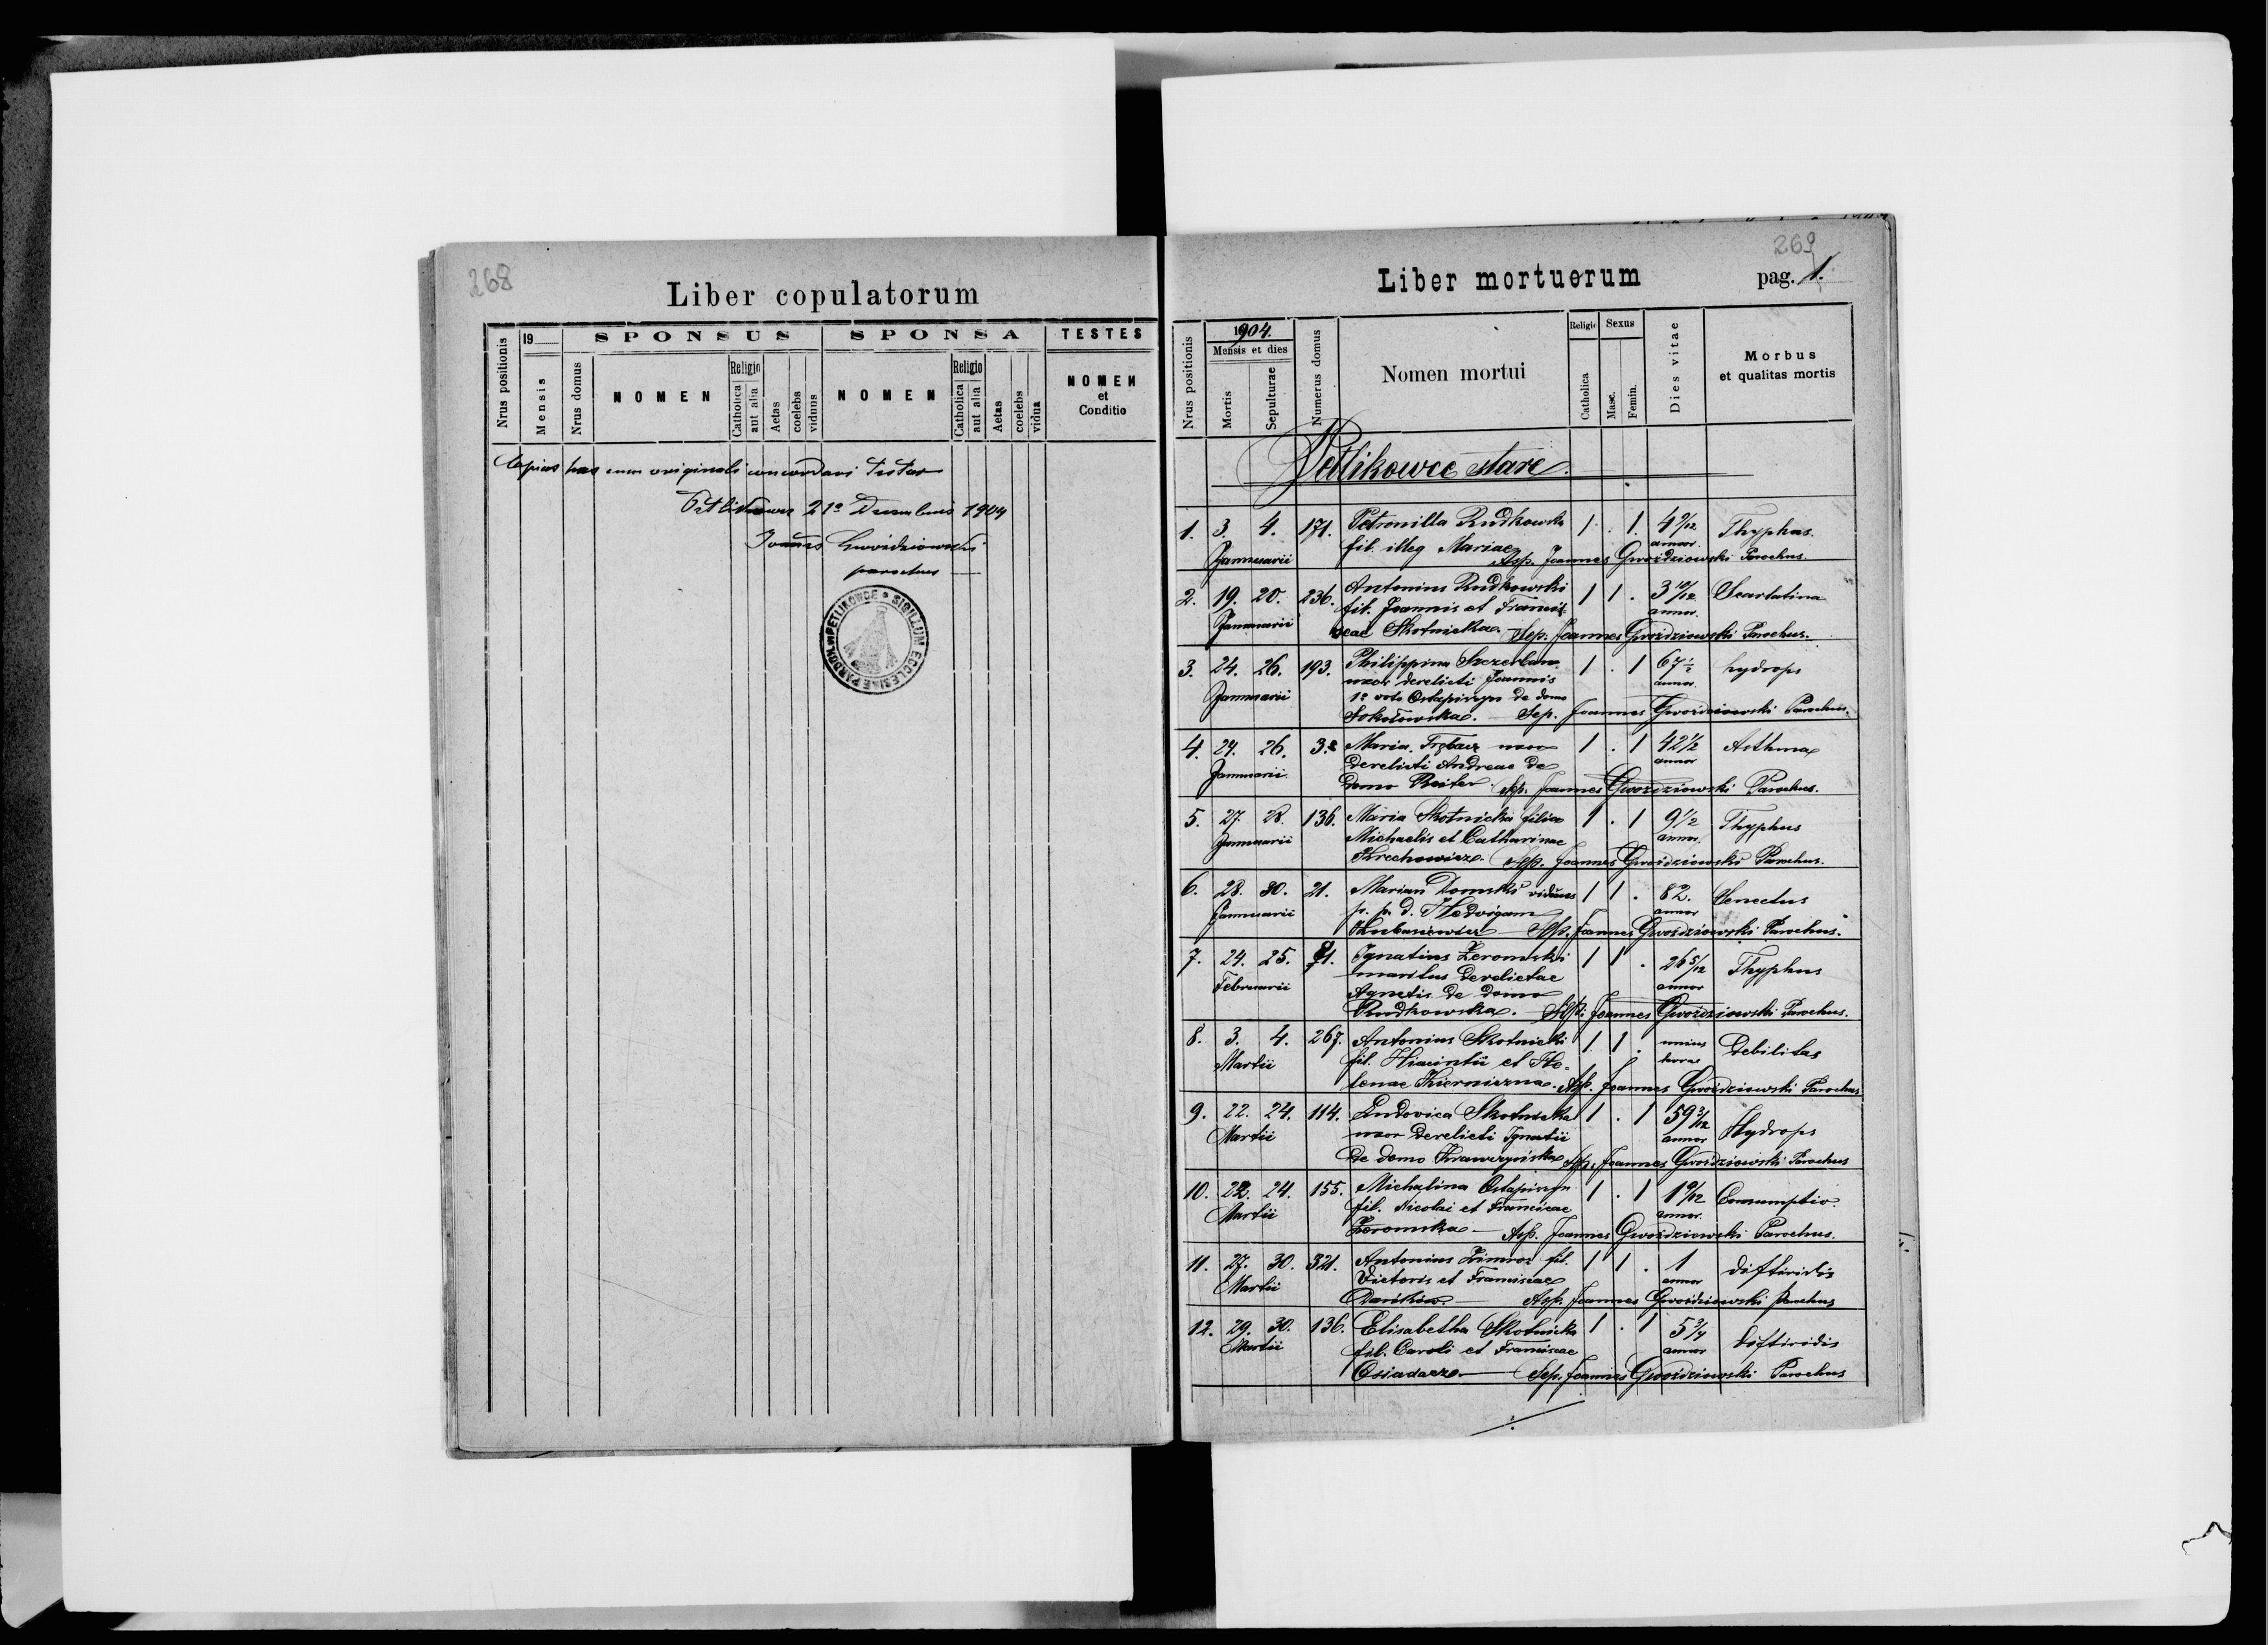 268
Liber copulatorum
Nrus positionis
19
Mensis
Nrus domus
SPONSUS
NOMEN
Religio
Catholica
aut alia
Aetas
coelebs
viduus
SPONSA
NOMEN
Religio
Catholica
aut alia
Aetas
coelebs
vidua
TESTES
NOMEN
et
Conditio
Copias has cum originali concordari testor
Petlikowce 21º Decembris 1904
Joannes Gwoździowski
parochus
SIGILLUM ECCLESIAE PAROCH. in PETLIKOWCE
269
Liber mortuorum
pag. 1.
Nrus positionis
1904.
Mensis et dies
Mortis
Sepulturae
Numerus domus
Nomen mortui
Religio
Catholica
Sexus
Masc.
Femin.
Dies vitae
Morbus
et qualitas mortis
Petlikowce stare
1. 3. 4. 171. Petronilla Rudkowska 1 . 1. 4 9/12 Thyphus.
Januarii fil. illeg Mariae annor.
Sep. Joannes Gwoździowski Parochus.
2. 19. 20. 236. Antonius Rudkowski 1 1 . 3 10/12 Scarlatina
Januarii fil. Joannis et Francis annor.
cae Skotnicka. Sep. Joannes Gwoździowski Parochus.
3. 24. 26. 193. Philippina Szczerban 1 . 1 67 1/2 hydrops
Januarii uxor derelicti Joannis annor.
1º voto Ostapiszyn de domo
Sokołowska. Sep. Joannes Gwoździowski Parochus.
4. 24. 26. 32 Maria Trębacz uxor 1 . 1 42 1/2 Asthma
Januarii derelicti Andreae de annor
domo Reiter. Sep. Joannes Gwoździowski Parochus.
5. 27. 28. 136. Maria Skotnicka filia 1 . 1 9 1/2 Thyphus
Januarii Michaelis et Catharinae annor.
Krechowicz. Sep. Joannes Gwoździowski Parochus.
6. 28. 30. 21. Marian Domski viduus 1 1 . 82. Senectus
Januarii p. p. d. Hedvigam annor
Sep. Joannes Gwoździowski Parochus.
7. 24. 25. 71. Ignatius Żeromski 1 1 . 26 5/12 Thyphus
Februarii maritus derelictae annor
Agnetis de domo
Rudkowska. Sep. Joannes Gwoździowski Parochus.
8. 3. 4. 267. Antonius Skotnicki 1 1 . unius Debilitas
Martii fil. Hiacintii et He- horae
lenae Kierniczna. Sep. Joannes Gwoździowski Parochus
9. 22. 24. 114. Ludovica Skotnicka 1 . 1 59 3/12 Hydrops
Martii uxor derelicti Ignatii annor
de domo Krawczyńska Sep. Joannes Gwoździowski Parochus
10. 22. 24. 155. Michalina Ostapiszyn 1 . 1 1 9/12 Consumptio.
Martii fil. Nicolai et Franciscae annor.
Żeromska Sep. Joannes Gwoździowski Parochus.
11. 27. 30. 321. Antonius Zimroz fil. 1 1 . 1 diftiridis
Martii Victoris et Franciscae annor
Sep. Joannes Gwoździowski Parochus
12. 29. 30. 136. Elisabetha Skotnicka 1 . 1 5 3/4 diftiridis
Martii fil. Caroli et Franciscae annor
Osiadacz Sep. Joannes Gwoździowski Parochus